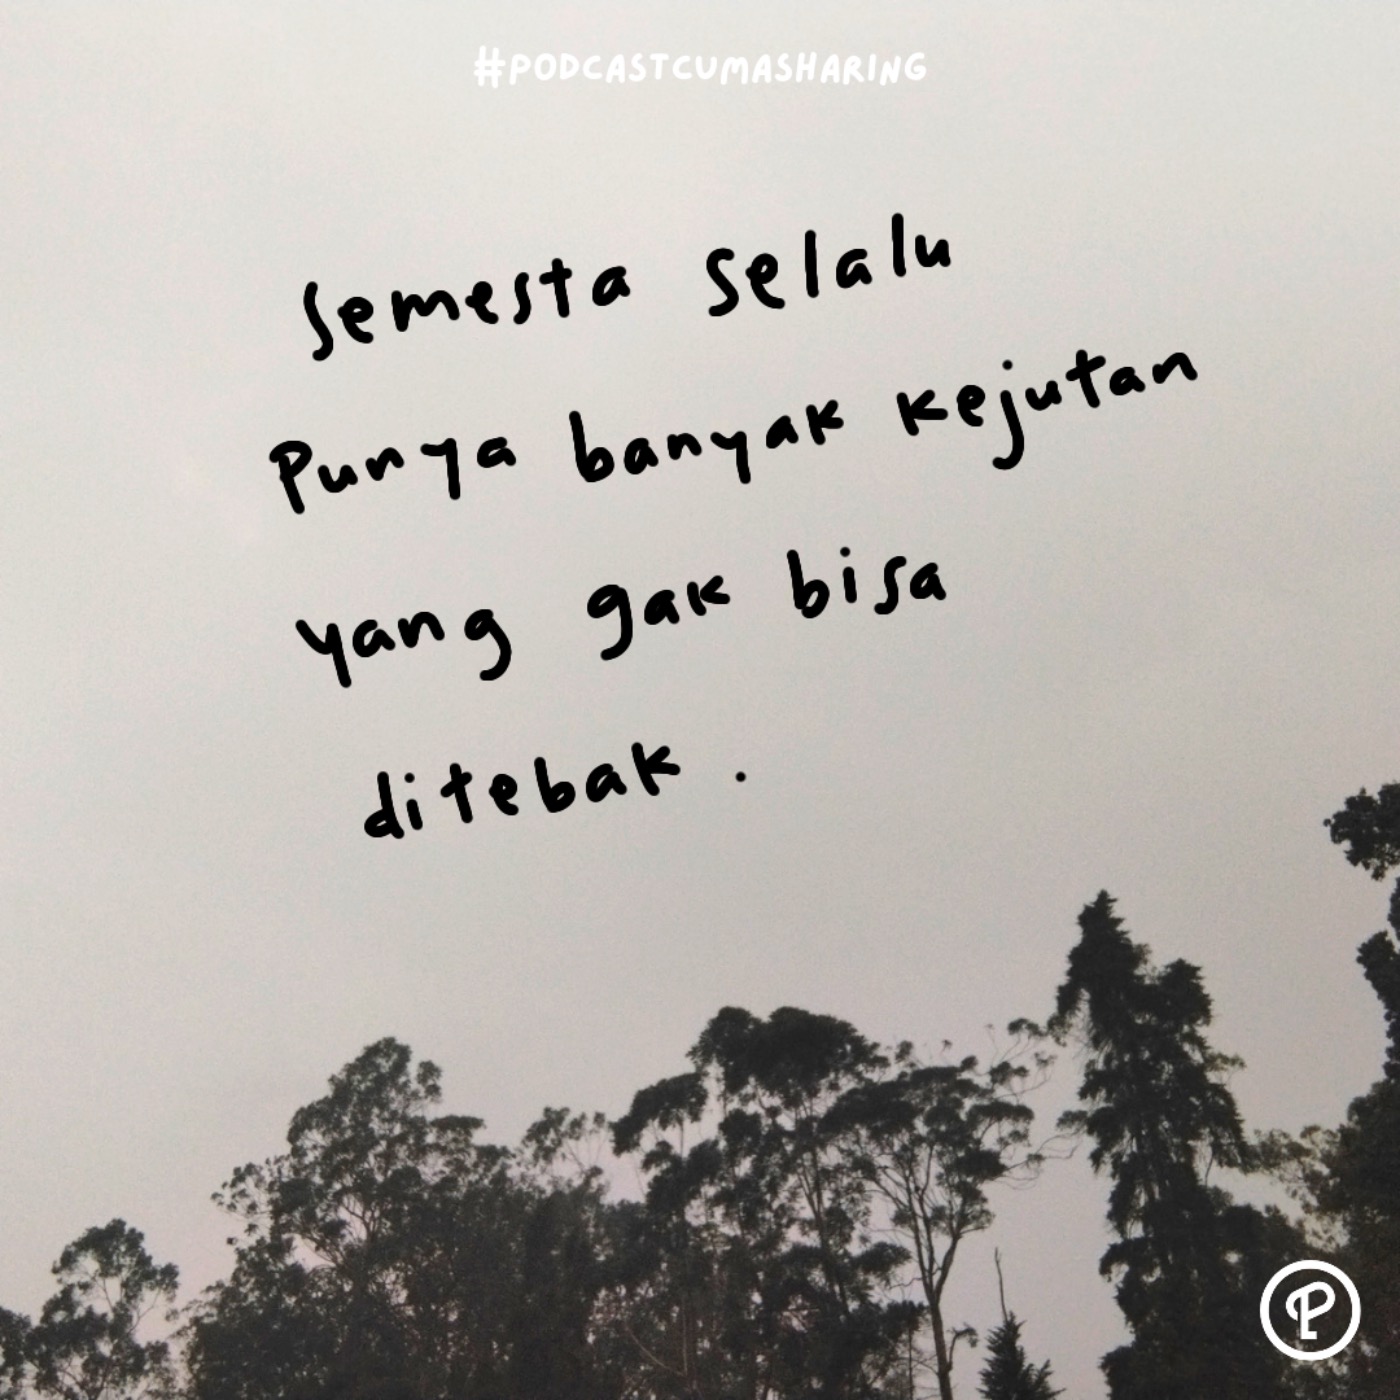 #PODCASTCUMASHARING
Semesta Selalu
Punya banyak kejutan
yang gak bisa
ditebak .
P